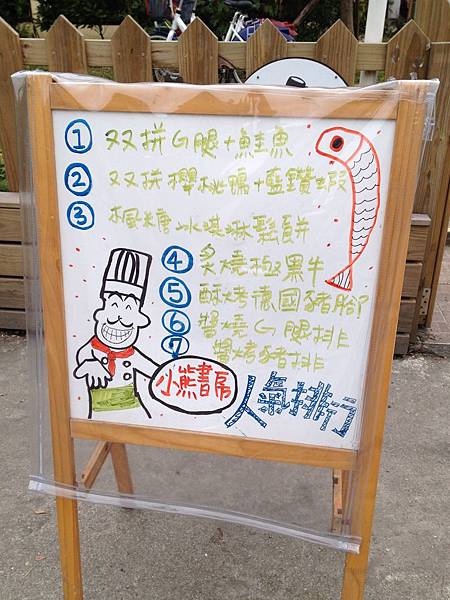 ① 双拼G腿+鮭魚
② 双拼櫻桃鴨+藍鑽蝦
③ 楓糖冰淇淋鬆餅
④ 炙燒極黑牛
⑤ 酥烤德國豬腳
⑥ 醬燒G腿排
⑦ 醬烤豬排
小熊書房
人氣排行